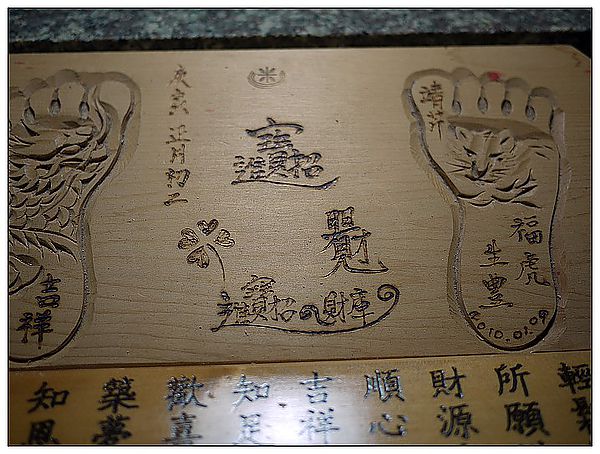 靖芹
福虎
生豐
2010.01.09
正月初二
招財進寶
招財進寶
財庫
吉祥
輕鬆
所願
財源
順心
吉祥
知足
歡喜
築夢
知恩